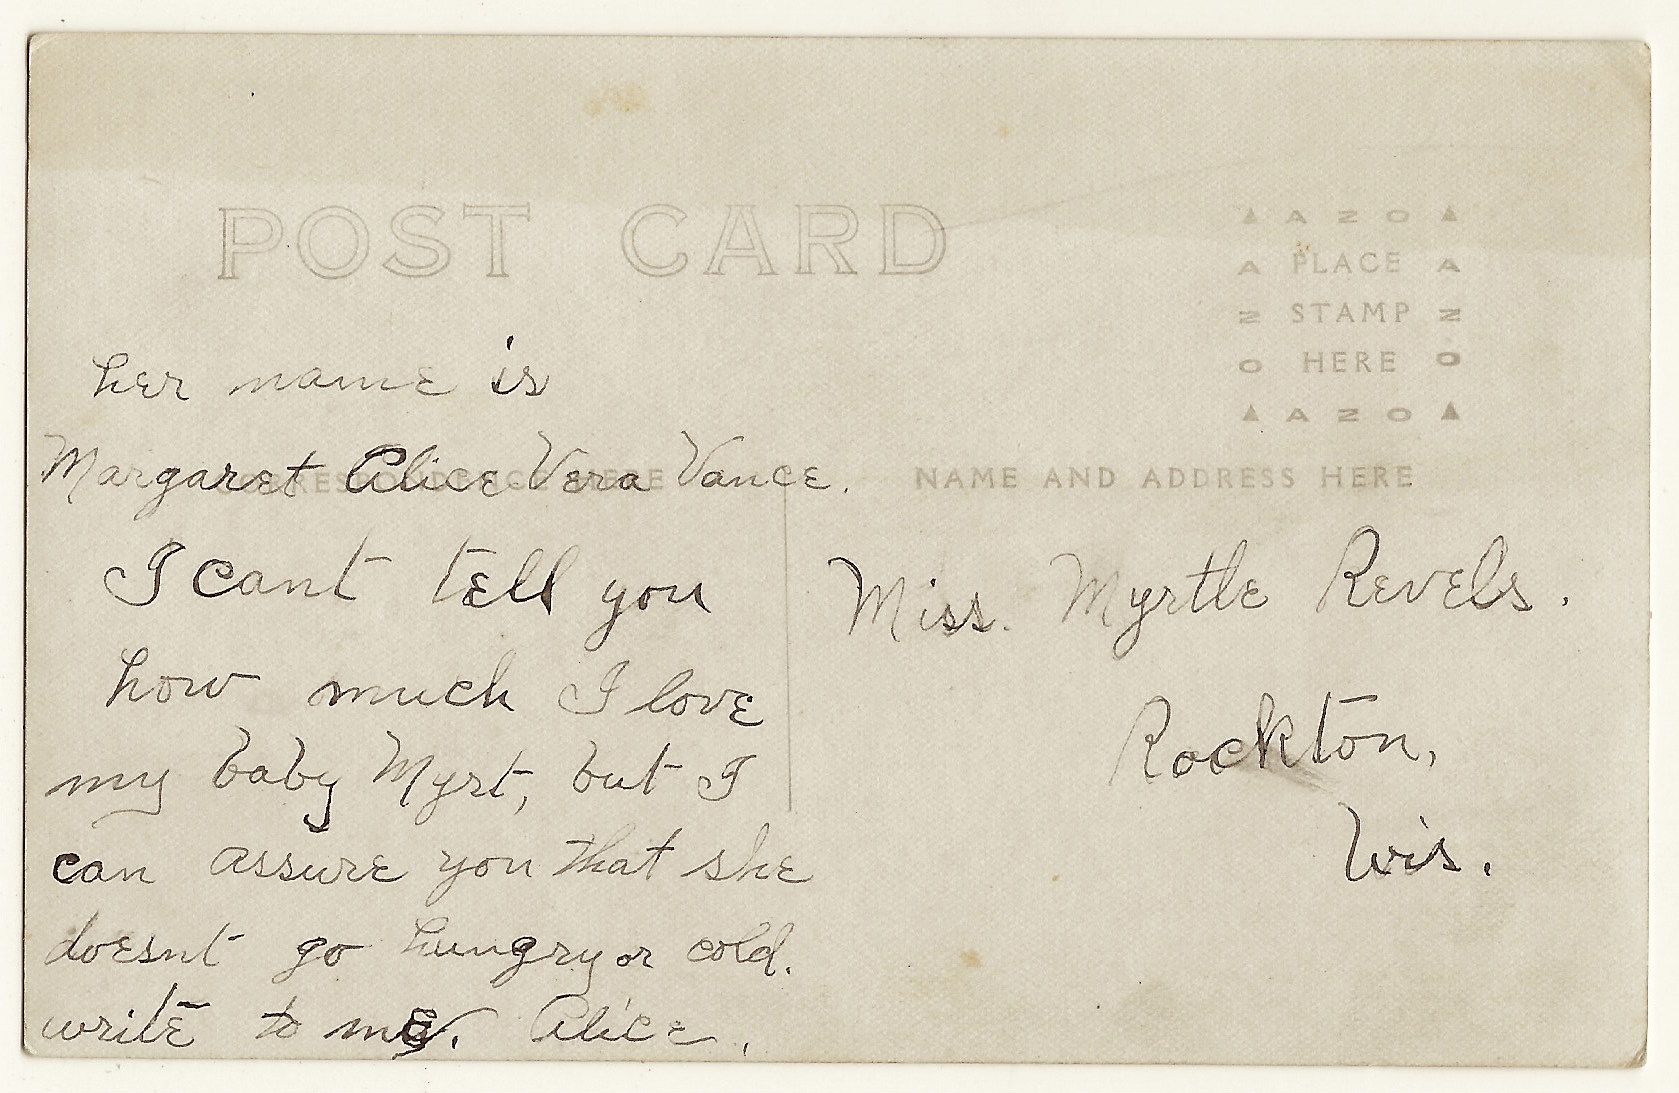 POST CARD
▲ A Z O ▲
A PLACE A
Z STAMP Z
O HERE O
▲ A Z O ▲
her name is
Margaret Alice Vera Vance.
CORRESPONDENCE HERE
NAME AND ADDRESS HERE
I cant tell you
how much I love
my baby Myrt, but I
can assure you that she
doesnt go hungry or cold.
write to me. Alice.
Miss. Myrtle Revels.
Rockton,
Wis.